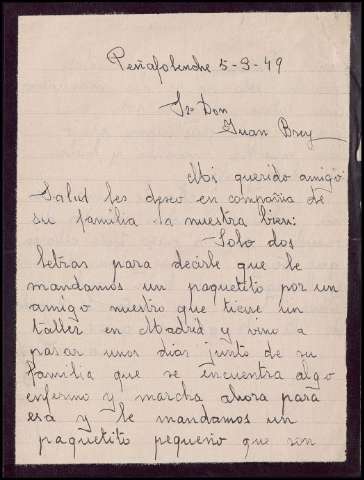 Peñafolenche 5-9-49
Sr Don
Juan Brey
Mi querido amigo:
Salud les deseo en compañia de
su familia la nuestra bien:
Solo dos
letras para decirle que le
mandamos un paquetito por un
amigo nuestro que tiene un
taller en Madrid y vino a
pasar unos dias junto de su
familia que se encuentra algo
enfermo y marcha ahora para
esa y le mandamos un
paquetito pequeño que son